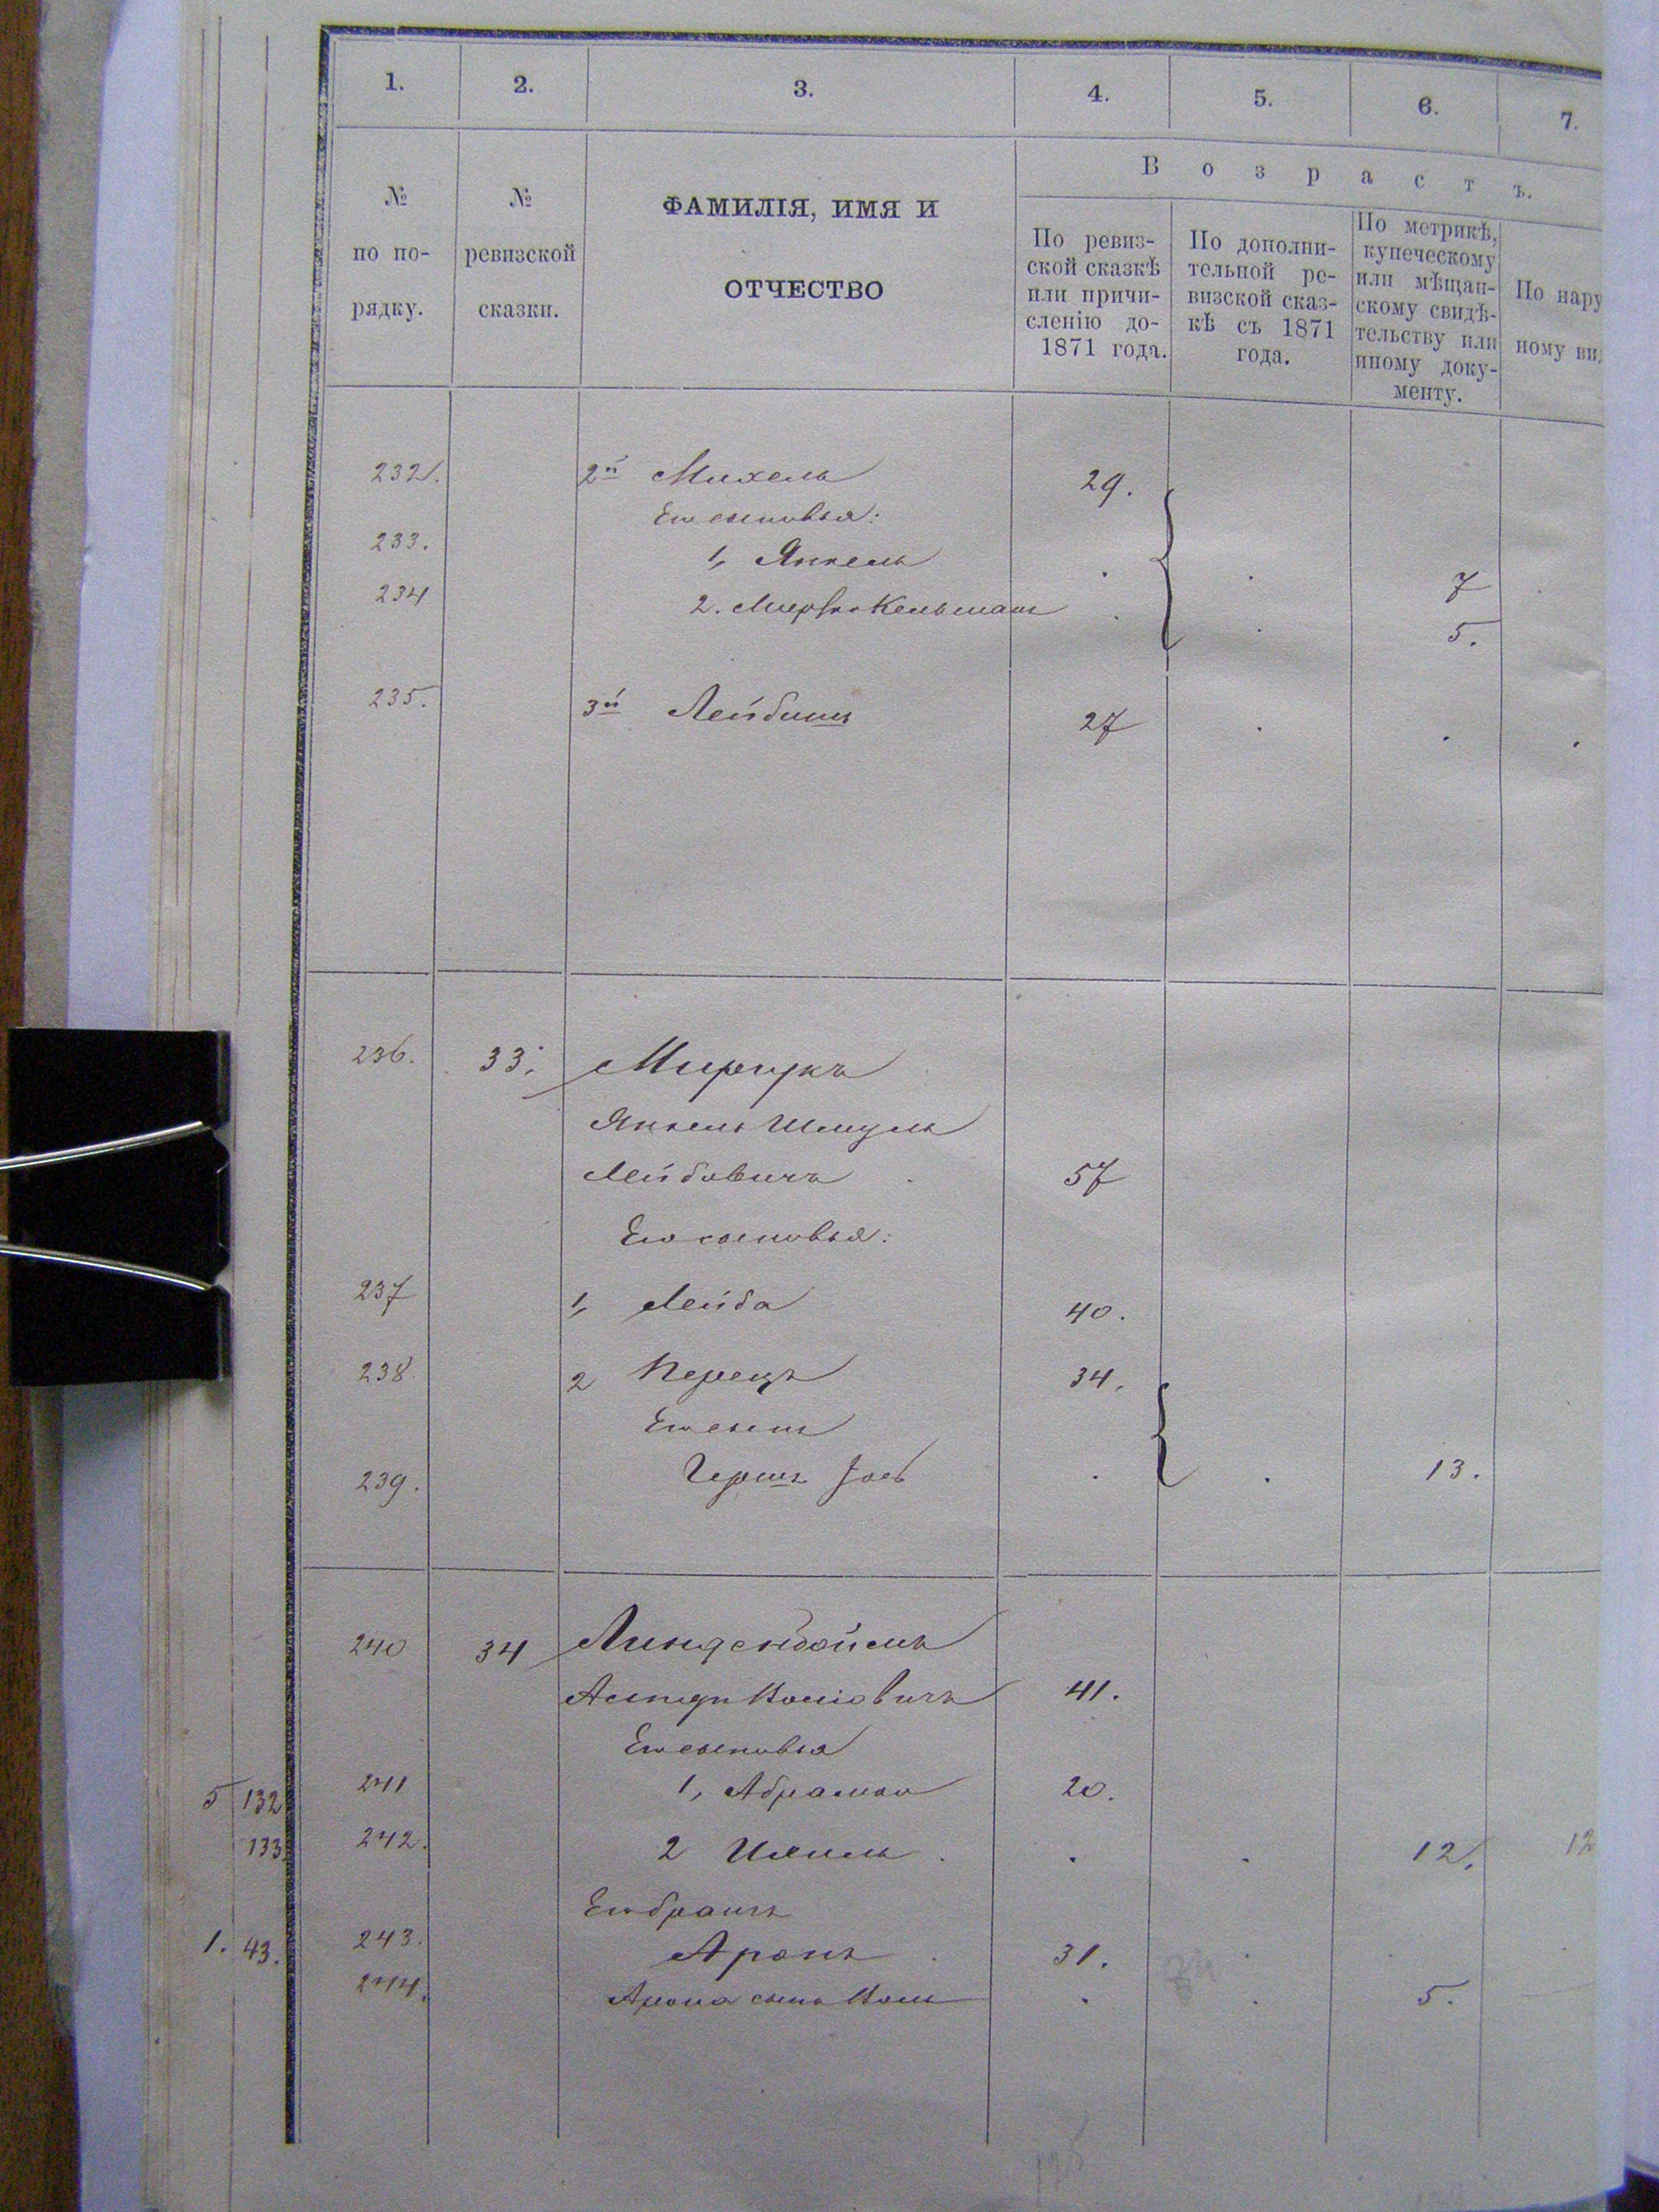 1. 2. 3. 4. 5. 6. 7.
Возрастъ.
№ по по-рядку.
№ ревизской сказки.
ФАМИЛІЯ, ИМЯ И
ОТЧЕСТВО
По ревиз-
ской сказкѣ
или причи-
сленію до-
1871 года.
По дополни-
тельной ре-
визской сказ-
кѣ съ 1871
года.
По метрикѣ,
купеческому
или мѣщан-
скому свидѣ-
тельству или
иному доку-
менту.
По нару
ному ви
232. 2й Михель 29.
Его сыновья:
233. 1, Янкель . . 7
234 2. . . 5.
235. 3й Лейбишъ 27 . . .
236. 33.
Янкель Шмуль
Лейбовичъ 57
Его сыновья:
237 1, Лейба 40.
238. 2 Перецъ 34.
Его сынъ
239. Гершъ Іось . . 13.
240 34 Линденбоймъ
41.
Его сыновья
5 132 241 1, Абрамъ 20.
133 242. 2 Ихиль . . 12. 12
Его братъ
1. 43. 243. Аронъ 31. .
244. Арона сынъ . . 5.